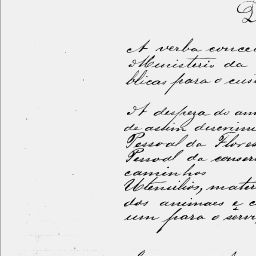 D
A verba conce
Ministerio da
blicas para o cus
A despeza do am
de assim discrimi
Pessoal da Flores
Pessoal da conser
caminhos
Utensilios, mater
dos animaes e c
um para o servi